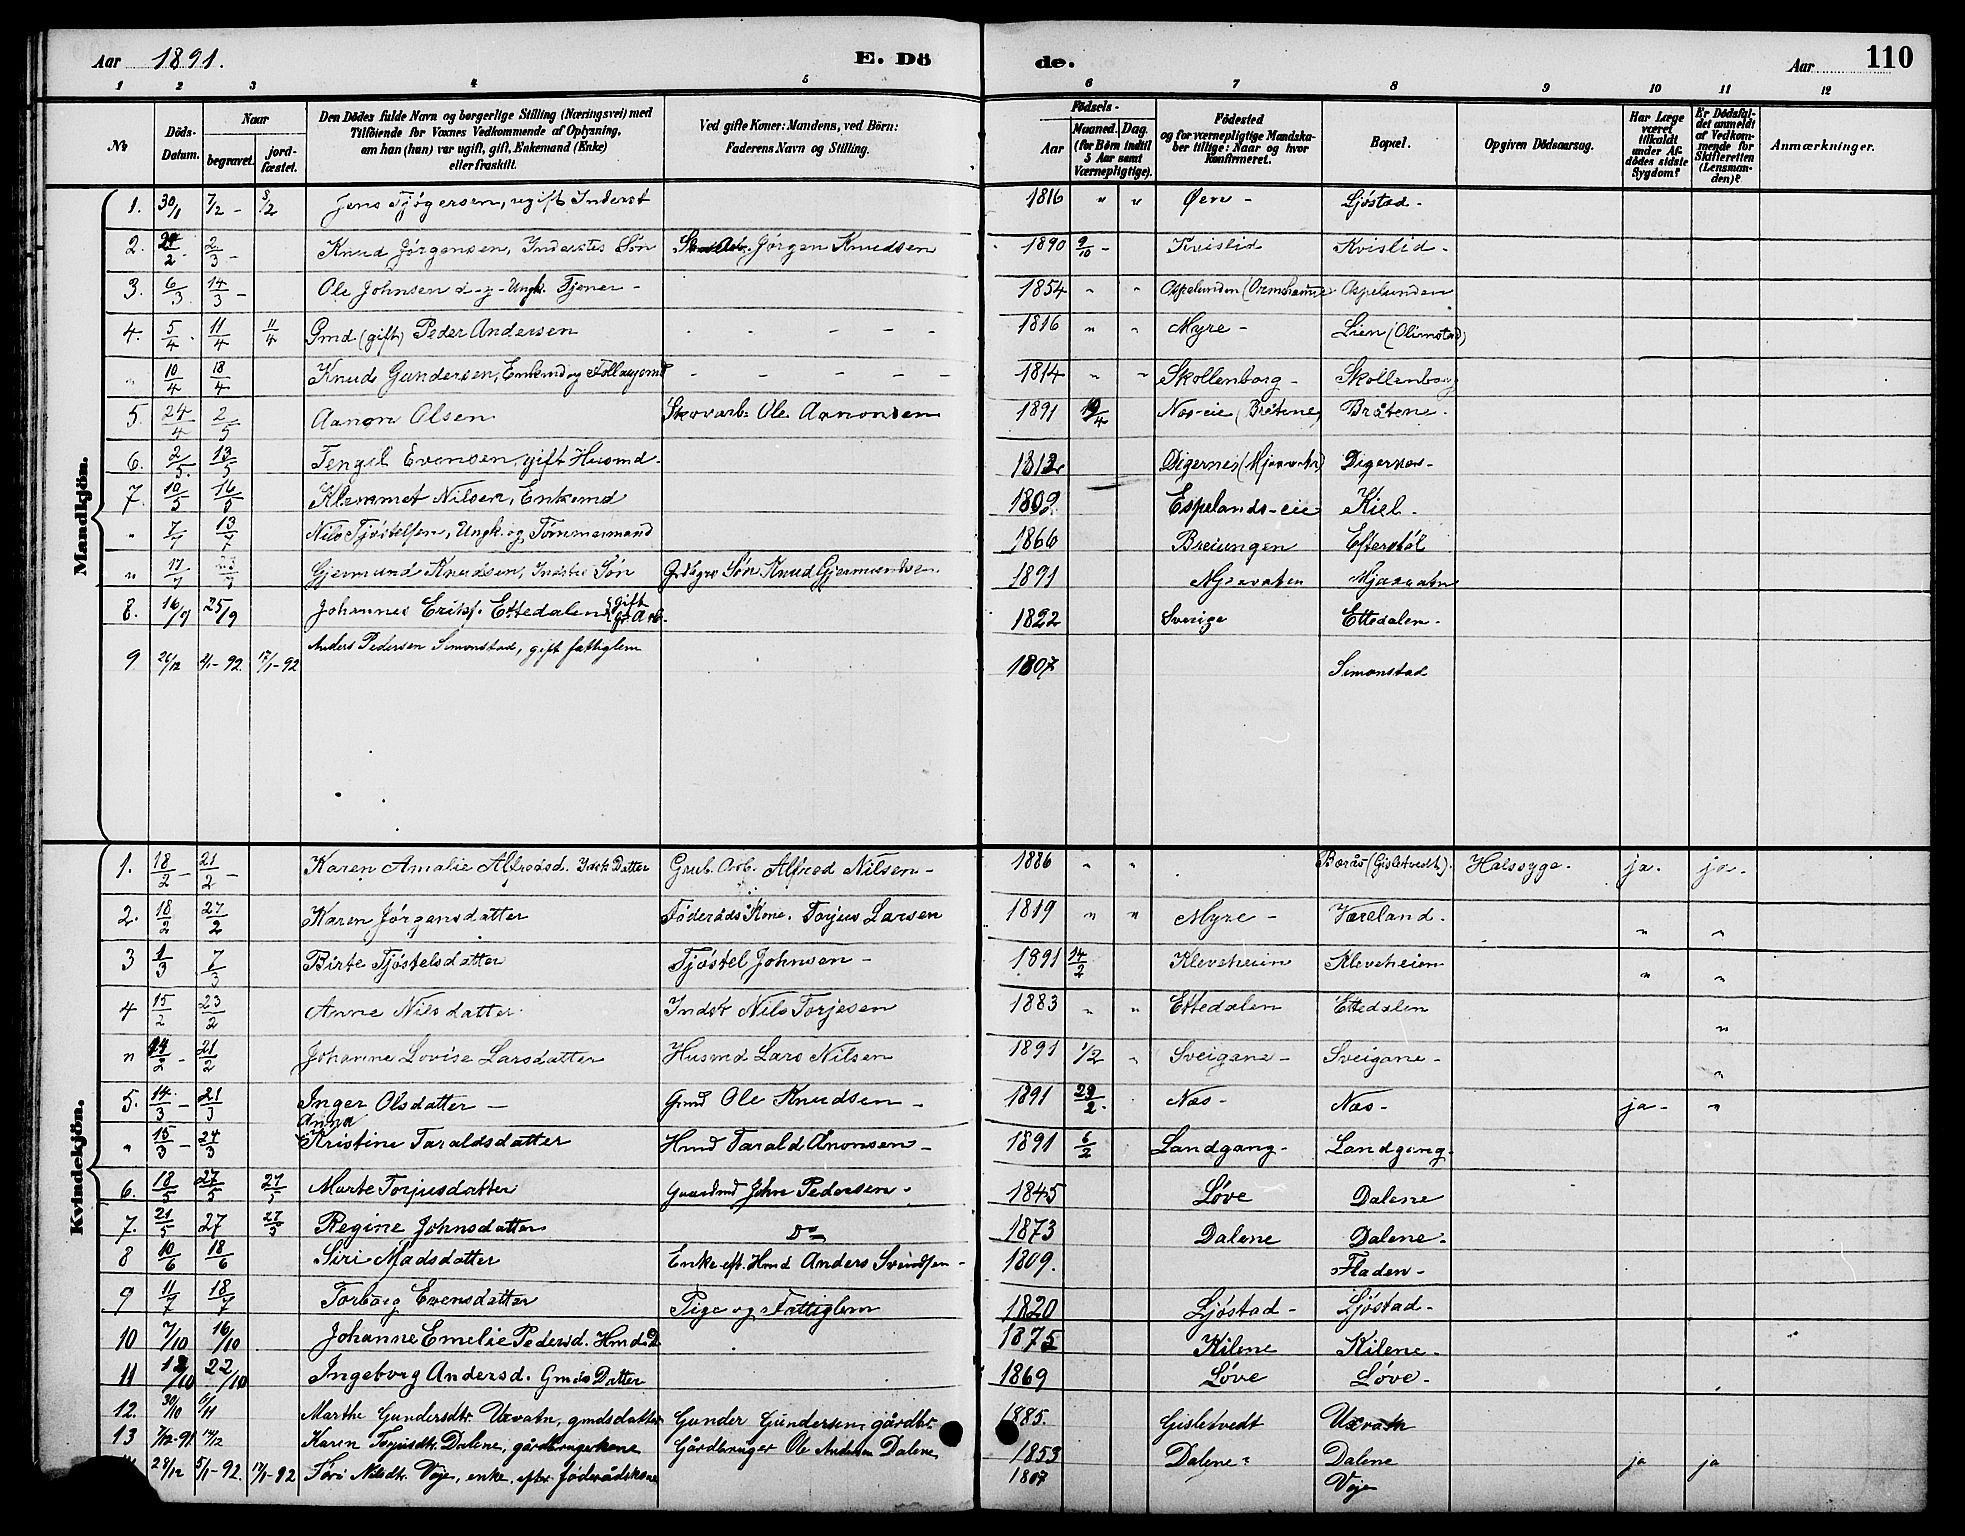 Aar 1891. E. Dö de. Aar 110
1 2 3 4 5 6 7 8 9 10 11 12
No Döds-Datum. Naar begravet. jord-fæstet. Den Dödes fulde Navn og borgerlige Stilling (Næringsvei) med Tilföiende for Voxnes Vedkommende af Oplysning, om han (hun) var ugift, gift, Enkemand (Enke) eller fraskilt. Ved gifte Koner: Mandens, ved Börn: Faderens Navn og Stilling. Födsels- Aar Maaned. Dag. (for Börn indtil 5 Aar samt Værnepligtige). Födested og for værnepligtige Mandskaber tillige: Naar og hvor Konfirmeret. Bopæl. Opgiven Dödsaarsag. Har Læge været tilkaldt under Afdödes sidste Sygdom? Er Dödsfaldet anmeldt af Vedkommende for Skifteretten (Lensmanden)? Anmærkninger.
Mandkjön.
1. 30/1 7/2 - 8/2 Jens Tjøgersen, ugift Inderst 1816 " " Øere - Ljøstad -
2. 2/3 - Knud Jørgensen, Inderstes Søn Jørgen Knudsen 1890 9/10 - Kvislid Kvislid -
3. 6/3 14/3 - Ole Johnsen Ungk. Tjener - 1854 " " Aspelunden Aspelunden
4. 5/4 - 11/4 11/4 Gmd (gift) Peder Andersen 1816 " " Myre - Lien (Olimstad)
" 10/4 18/4 Knud Gundersen, Enkemd og 1814 " " Skollenborg - Skollenborg
5. 24/4 2/5 Aanon Olsen Skovarb. Ole Aanonsen 1891 19/4 Næs-eie (Bråtene) Bråtene -
6. 2/5 13/5 Tengel Evensen, gift Husmd - 1812 Digernes (Mjaavatn) Digernes -
7. 10/5 16/5 Klemmet Nilsen, Enkemd 1809 Espelands-eie Kiel -
" 7/7 13/7 Nils Tjøstelsen, Ungk. og Tømmermand 1866 Breiungen Efterstøl
" 17/7 Gjermund Knudsen, Inderstes Søn Søn Knud Gjermundsen 1891 Mjaavaten Mjaavatn
8. 16/9 25/9 Johannes Eriks. Ettedalen (gift 1822 Sverige Ettedalen -
9 26/12 2/1-92. 17/1-92 Anders Pedersen Simonstad, gift fattiglem 1807 Simonstad
Kvindekjön.
1. 18/2 - 21/2 - Karen Amalie Alfredsd. Indsts Datter Grub. Arb. Alfred Nilsen - 1886 " " Borås (Gisletvedt). Halssyge. ja. ja.
2. 18/2 27/2 Karen Jørgensdatter Føderåds Kone. Torjus Larsen 1819 " " Myre - Væreland - " "
3 1/3 7/3 Birte Tjøstelsdatter Tjøstel Johnsen - 1891 14/2 Kleveheien Kleveheien " "
4 15/2 23/2 Anne Nilsdatter Indst Nils Torjesen 1883 " " Ettedalen Ettedalen "
" 14/2 - 21/2 Johanne Lovise Larsdatter Husmd Lars Nilsen 1891 1/2 " Sveigane - Sveigane - "
5. 14/3 - 21/3 Inger Olsdatter - Gmd Ole Knudsen - 1891 23/2 - Næs - Næs - ja - "
" 15/3 - 24/3 Anna Kristine Taraldsdatter Hmd Tarald Anonsen - 1891 6/2 Landgang - Landgang -
6. 18/5 27/5 27/5 Marte Torjusdatter Gaardmd John Pedersen - 1845 Løve Dalene
7. 21/5 27 27/5 Regine Johnsdatter Do 1873 Dalene Dalene -
8 10/6 18/6 Siri Madsdatter Enke eft. Hmd Anders Svendsen - 1809. Fladen -
9 11/7 18/7 Torborg Evensdatter Pige og Fattiglem 1820 Ljøstad - Ljøstad -
10 7/10 16/10 Johanne Emelie Pedersd. Hmds D 1875 Kilene Kilene -
11 12/10 22/10 Ingeborg Andersd. Gmds Datter 1869 Løve Løve -
12. 30/10 6/11 Marthe Gundersdtr. Uxvatn, gmdsdatter Gunder Gundersen, gårdbr. 1885. Gisletvedt Uxvatn
13 7/12-91. 14/12 Karen Torjusdtr. Dalene, gårdbrugerkone Gårdbruger Ole Andersen Dalene 1853 Dalene - Dalene ja ja
28/12 5/1-92. 17/1-92 Nilsdtr. Voje, enke efter føderådskone 1807 Voje